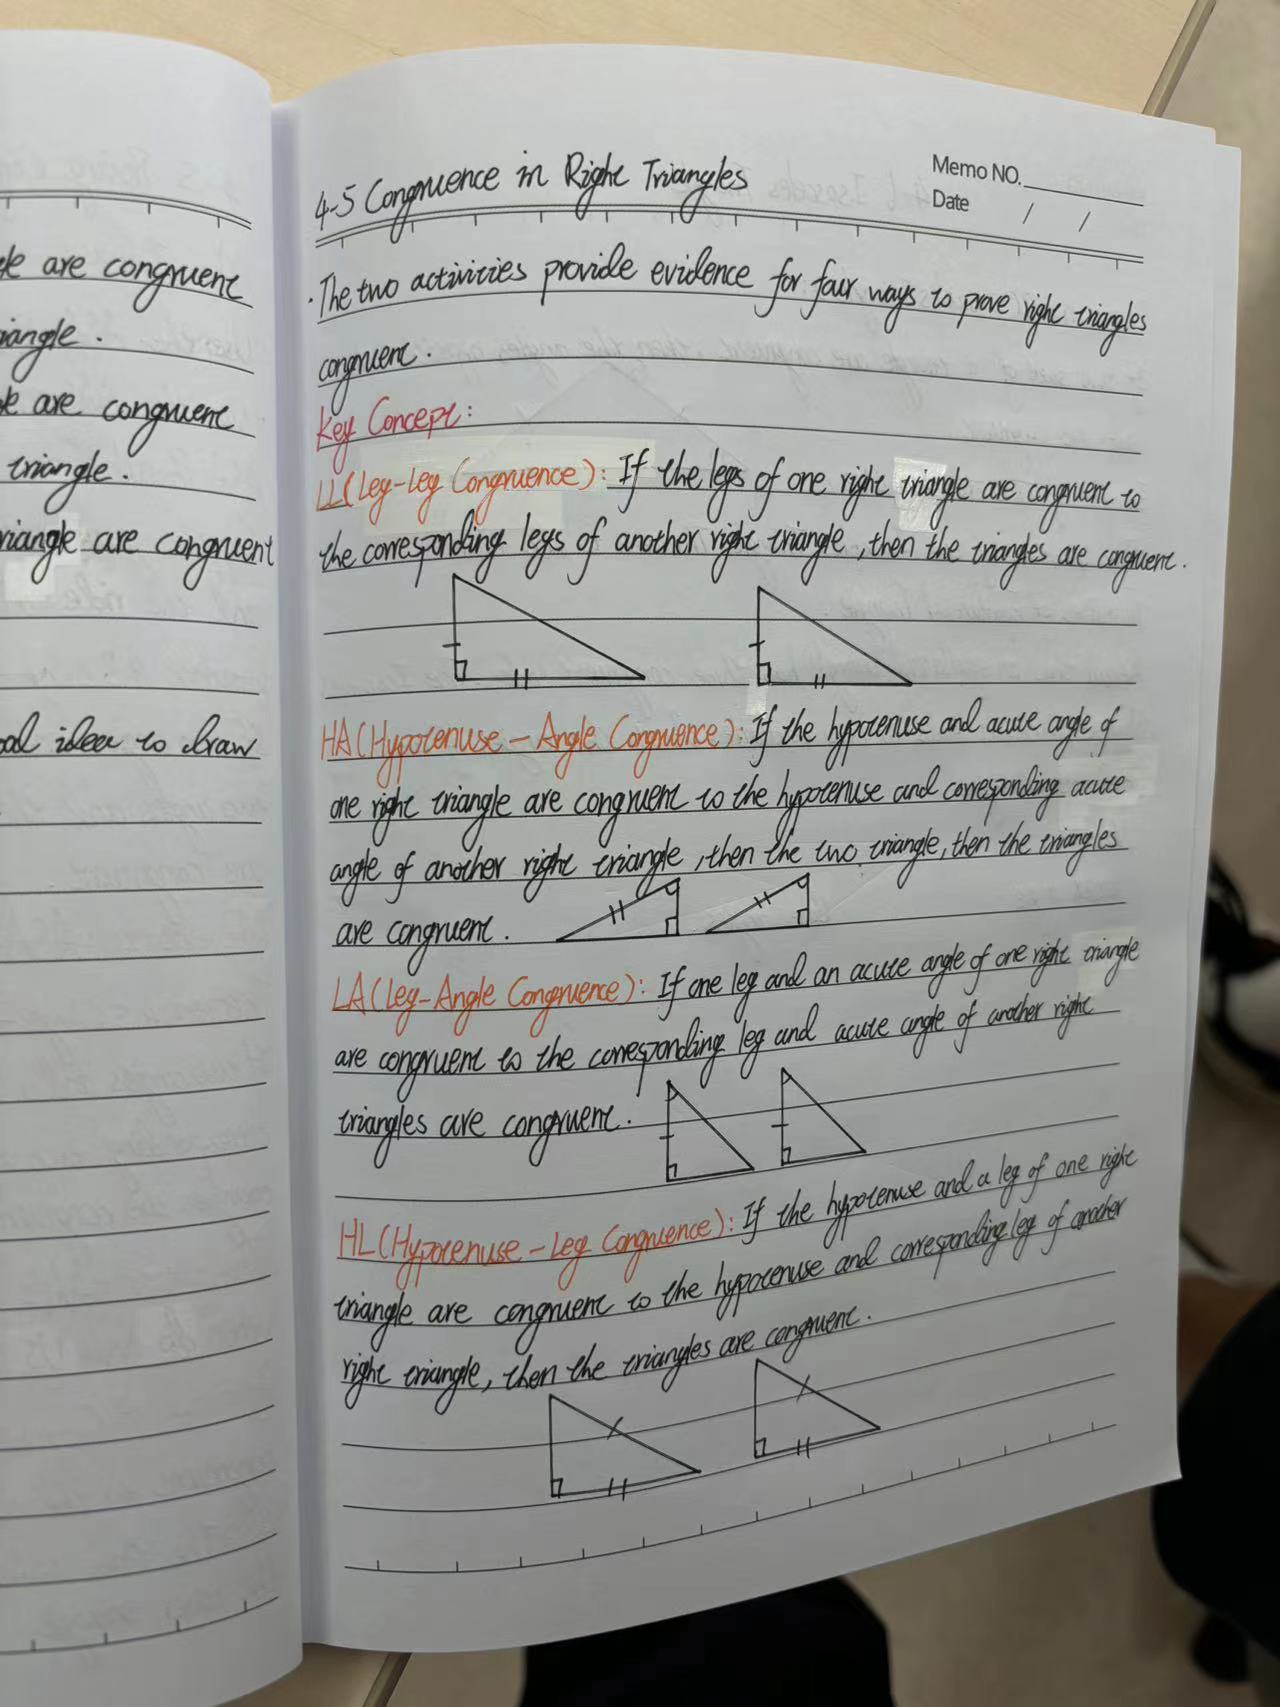 le are congruent
iangle.
le are congruent
triangle.
riangle are congruent
idea to draw
4-5 Congruence in Right Triangles
Memo NO.
Date / /
· The two activities provide evidence for four ways to prove right triangles
congruent.
Key Concept:
LL(Leg-Leg Congruence): If the legs of one right triangle are congruent to
the corresponding legs of another right triangle, then the triangles are congruent.
HA(Hypotenuse-Angle Congruence): If the hypotenuse and acute angle of
one right triangle are congruent to the hypotenuse and corresponding acute
angle of another right triangle, then the two triangle, then the triangles
are congruent.
LA(Leg-Angle Congruence): If one leg and an acute angle of one right triangle
are congruent to the corresponding leg and acute angle of another right
triangles are congruent.
HL(Hypotenuse-Leg Congruence): If the hypotenuse and a leg of one right
triangle are congruent to the hypotenuse and corresponding leg of another
right triangle, then the triangles are congruent.